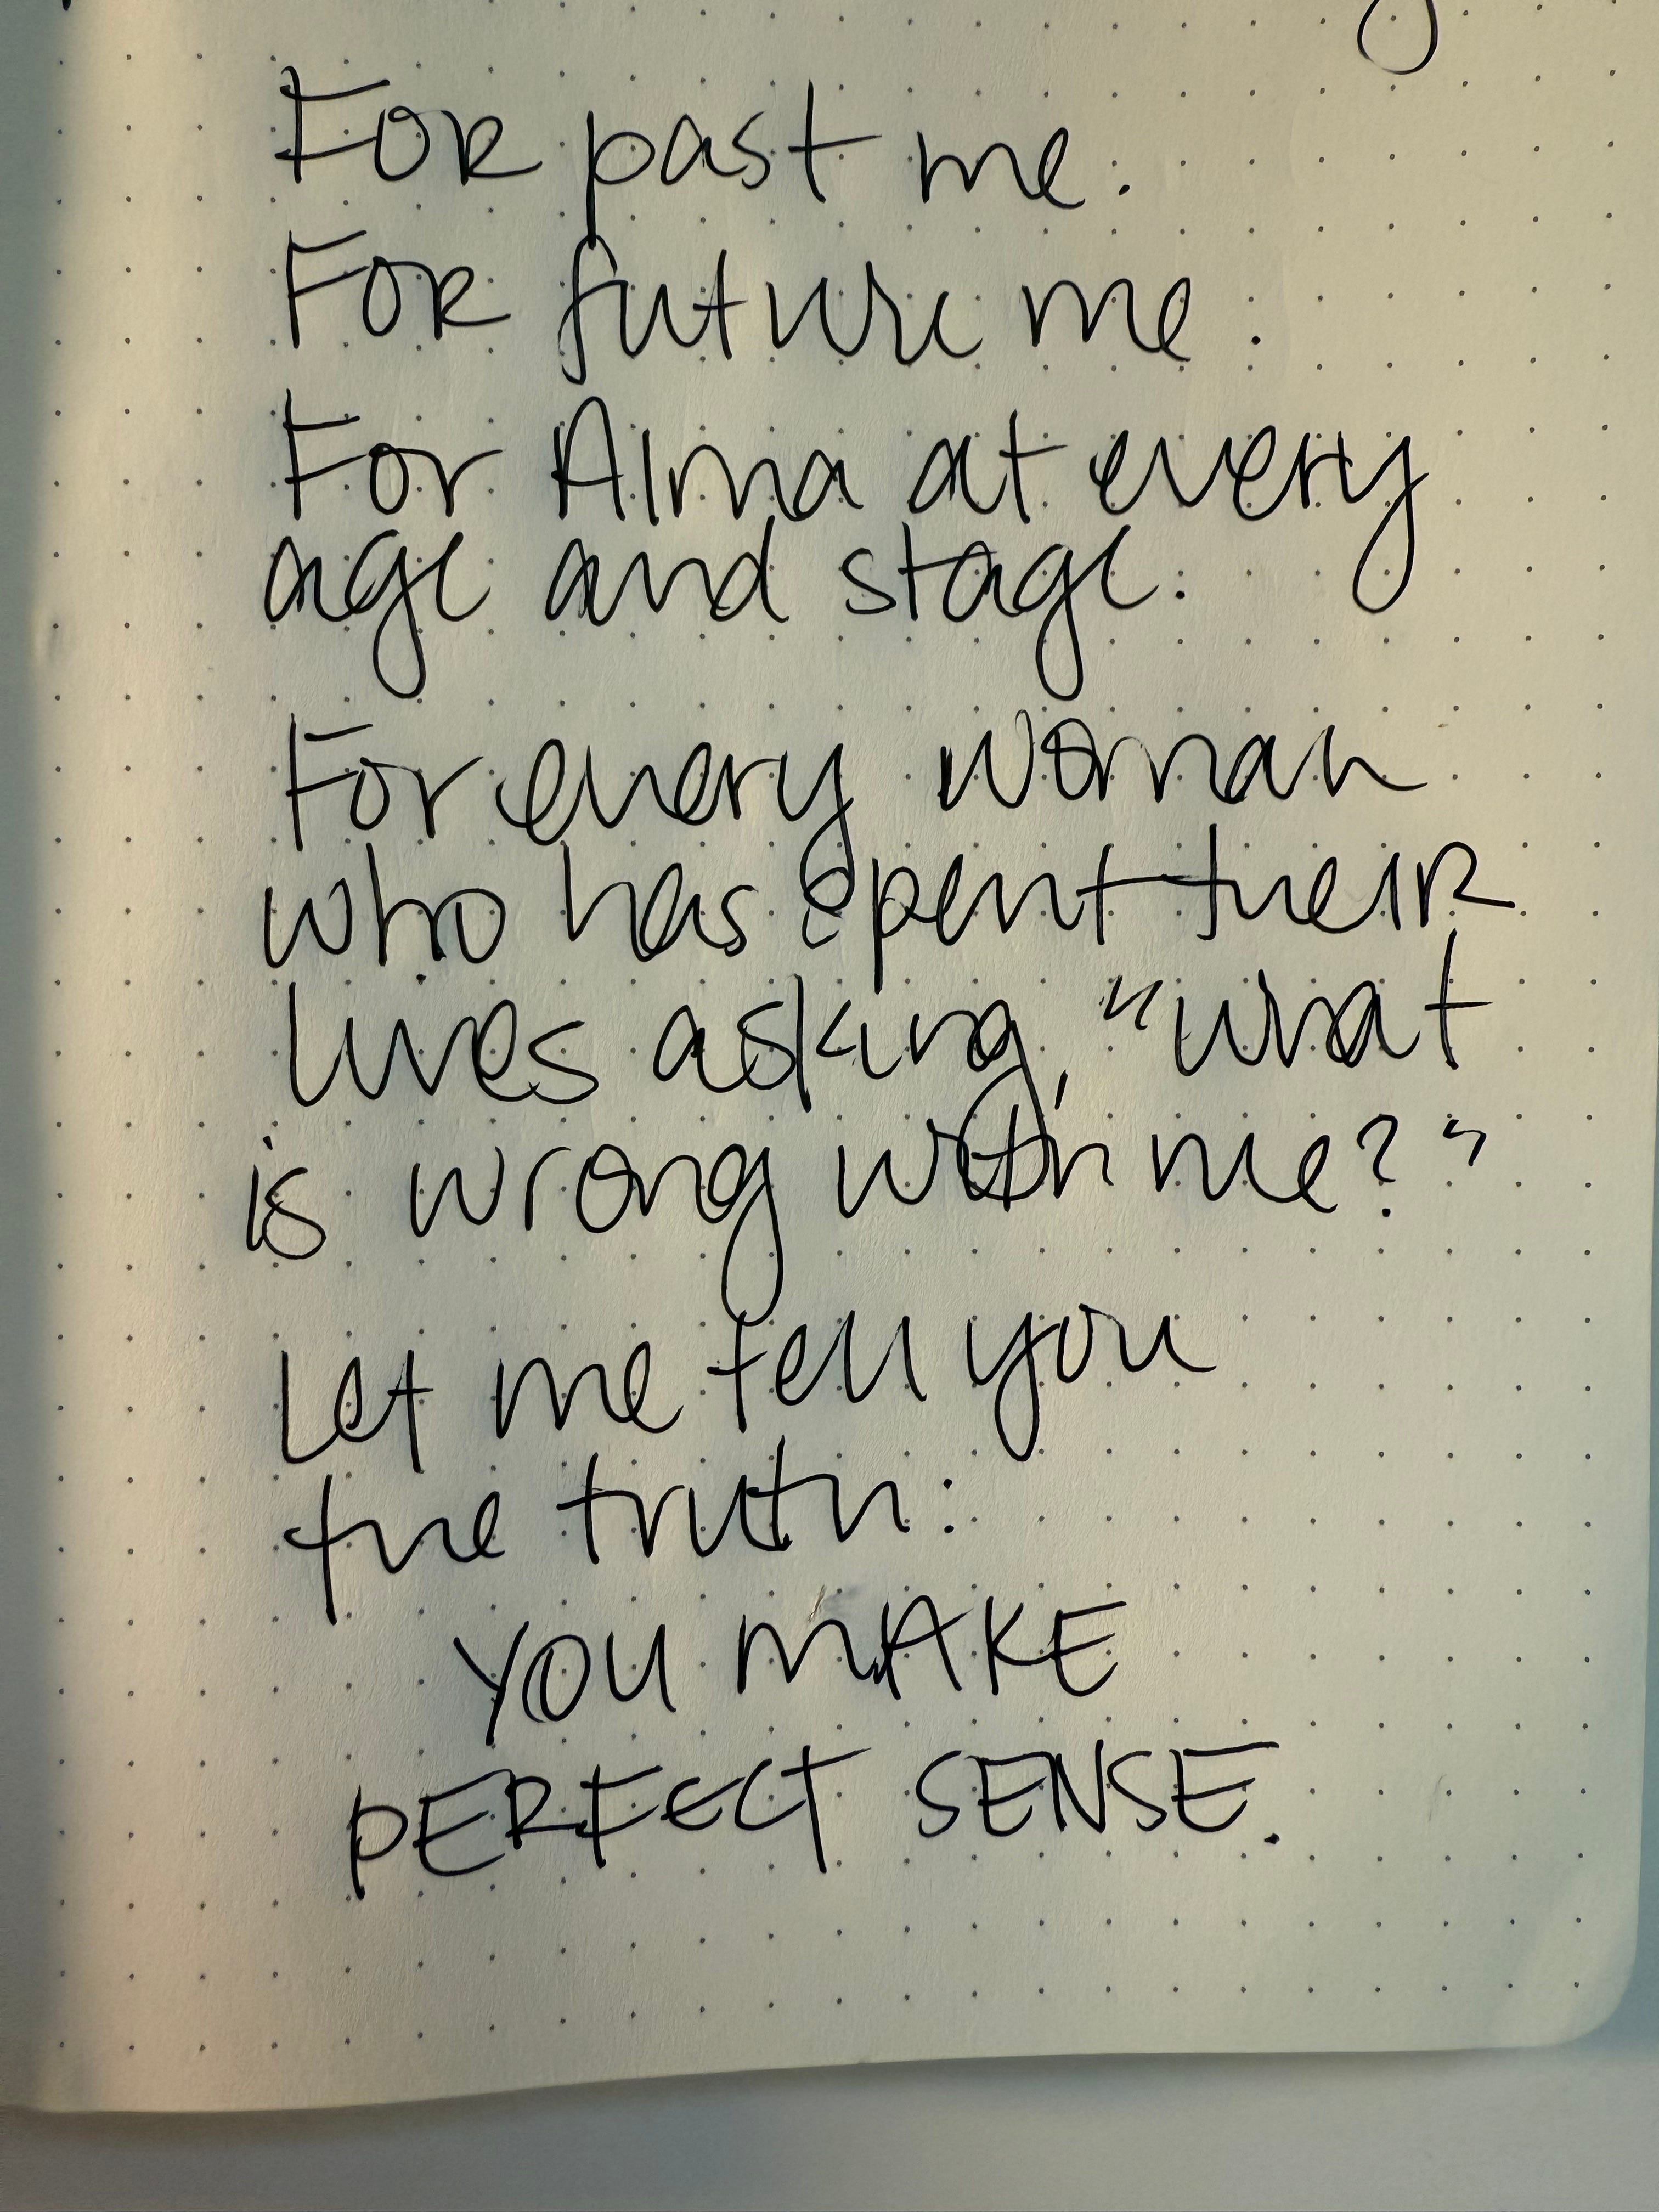 For past me.
For future me.
For Alma at every
age and stage.
For every woman
who has spent their
lives asking, "what
is wrong with me?"
Let me tell you
the truth:
YOU MAKE
PERFECT SENSE.